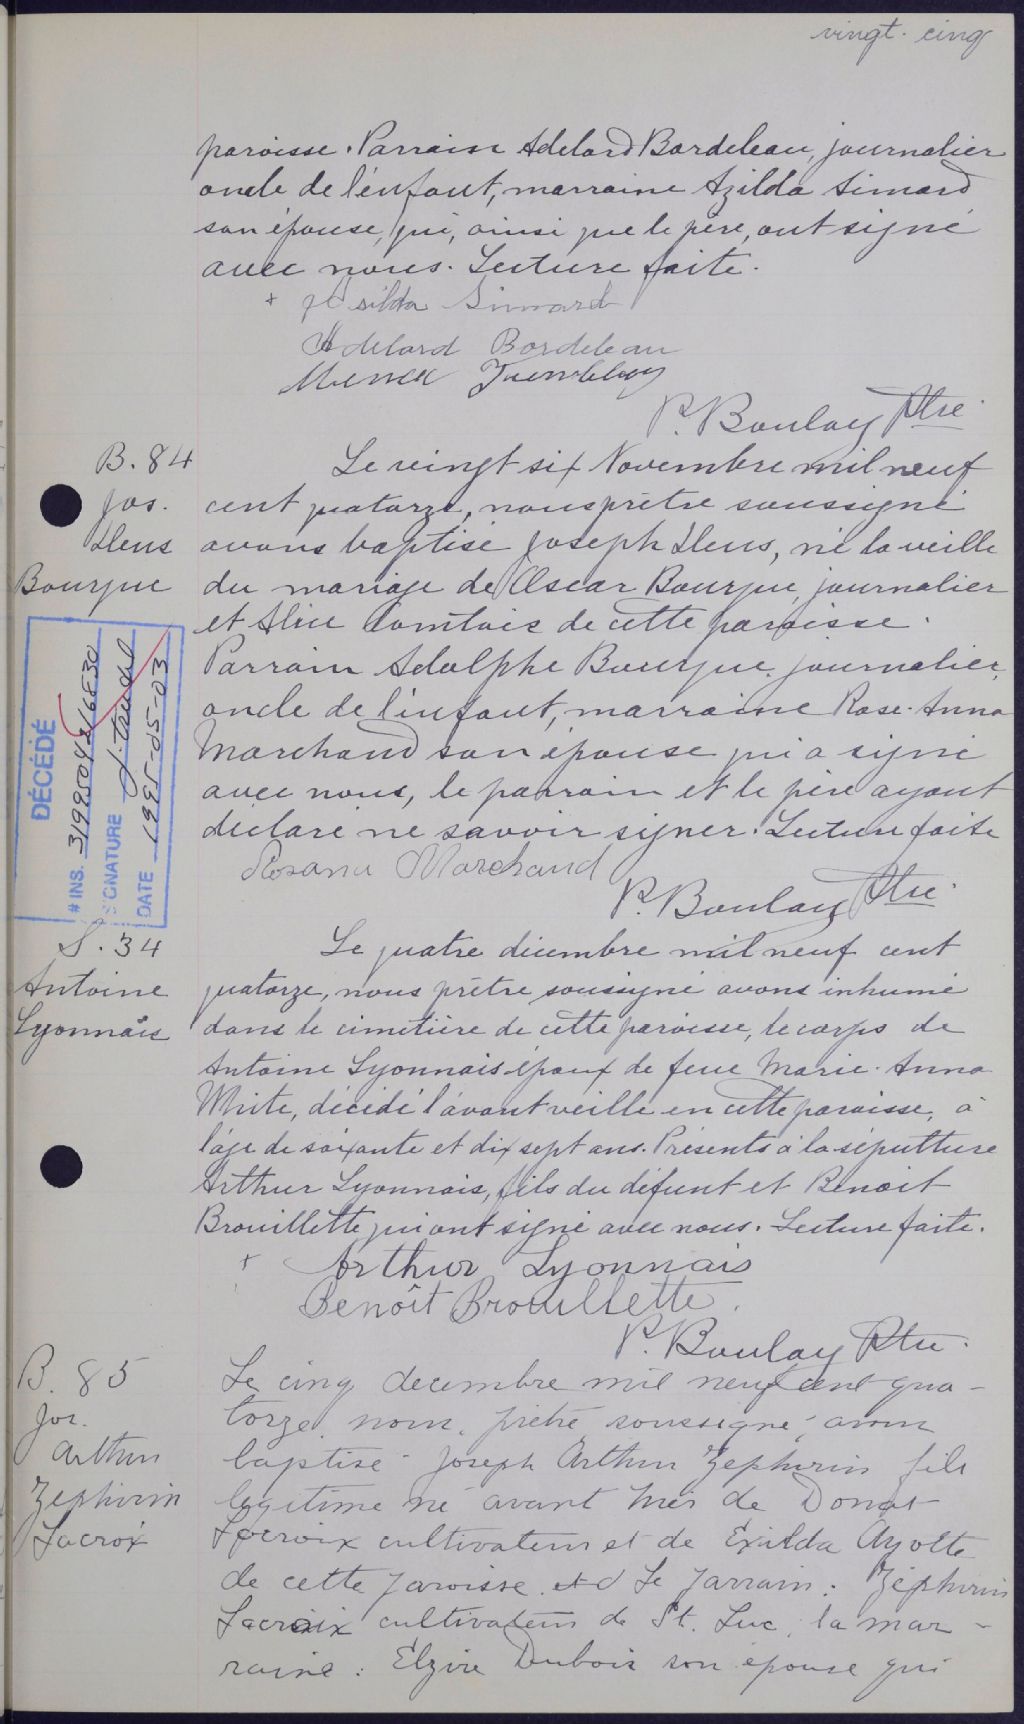 vingt-cinq
paroisse. Parrain Adelard Bordeleau, journalier
oncle de l'enfant, marraine Azilda Simard
son épouse, qui, ainsi que le père, ont signé
avec nous. Lecture faite.
+ Asilda Simard
Adelard Bordeleau
Tremblay
P. Boulay Ptre.
B. 84
Jos.
Ilens
Bourque
Le vingt six Novembre mil neuf
cent quatorze, nous prêtre soussigné
avons baptisé Joseph Ilens, né la veille
du mariage de Oscar Bourque, journalier
et Alice Comtois de cette paroisse.
Parrain Adolphe Bourque, journalier,
oncle de l'enfant, marraine Rose-Anna
Marchand son épouse qui a signé
avec nous, le parrain et le père ayant
déclaré ne savoir signer. Lecture faite
Rosana Marchand
P. Boulay Ptre.
DÉCÉDÉ
# INS.
SIGNATURE J. Trudel
DATE 1995-05-03
S. 34
Antoine
Lyonnais
Le quatre décembre mil neuf cent
quatorze, nous prêtre soussigné avons inhumé
dans le cimetière de cette paroisse, le corps de
Antoine Lyonnais époux de feue Marie-Anna
White, décédé l'avant veille en cette paroisse, à
l'âge de soixante et dix sept ans. Présents à la sépulture
Arthur Lyonnais, fils du défunt et Benoit
Brouillette qui ont signé avec nous. Lecture faite.
+ Arthur Lyonnais
Benoît Brouillette.
P. Boulay Ptre.
B. 85
Jos.
Arthur
Zephirin
Lacroix
Le cinq decembre mil neuf cent qua-
torze, nous, prêtre soussigné, avons
baptisé Joseph Arthur Zephirin fils
legitime né avant hier de Donat
Lacroix cultivateur et de Exilda Ayotte
de cette paroisse. Le parrain: Zéphirin
Lacroix cultivateur de St. Luc, la mar-
raine: Elzire Dubois son épouse qui